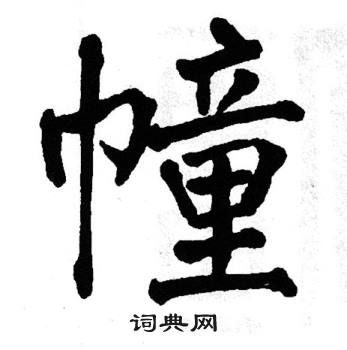 幢
词典网